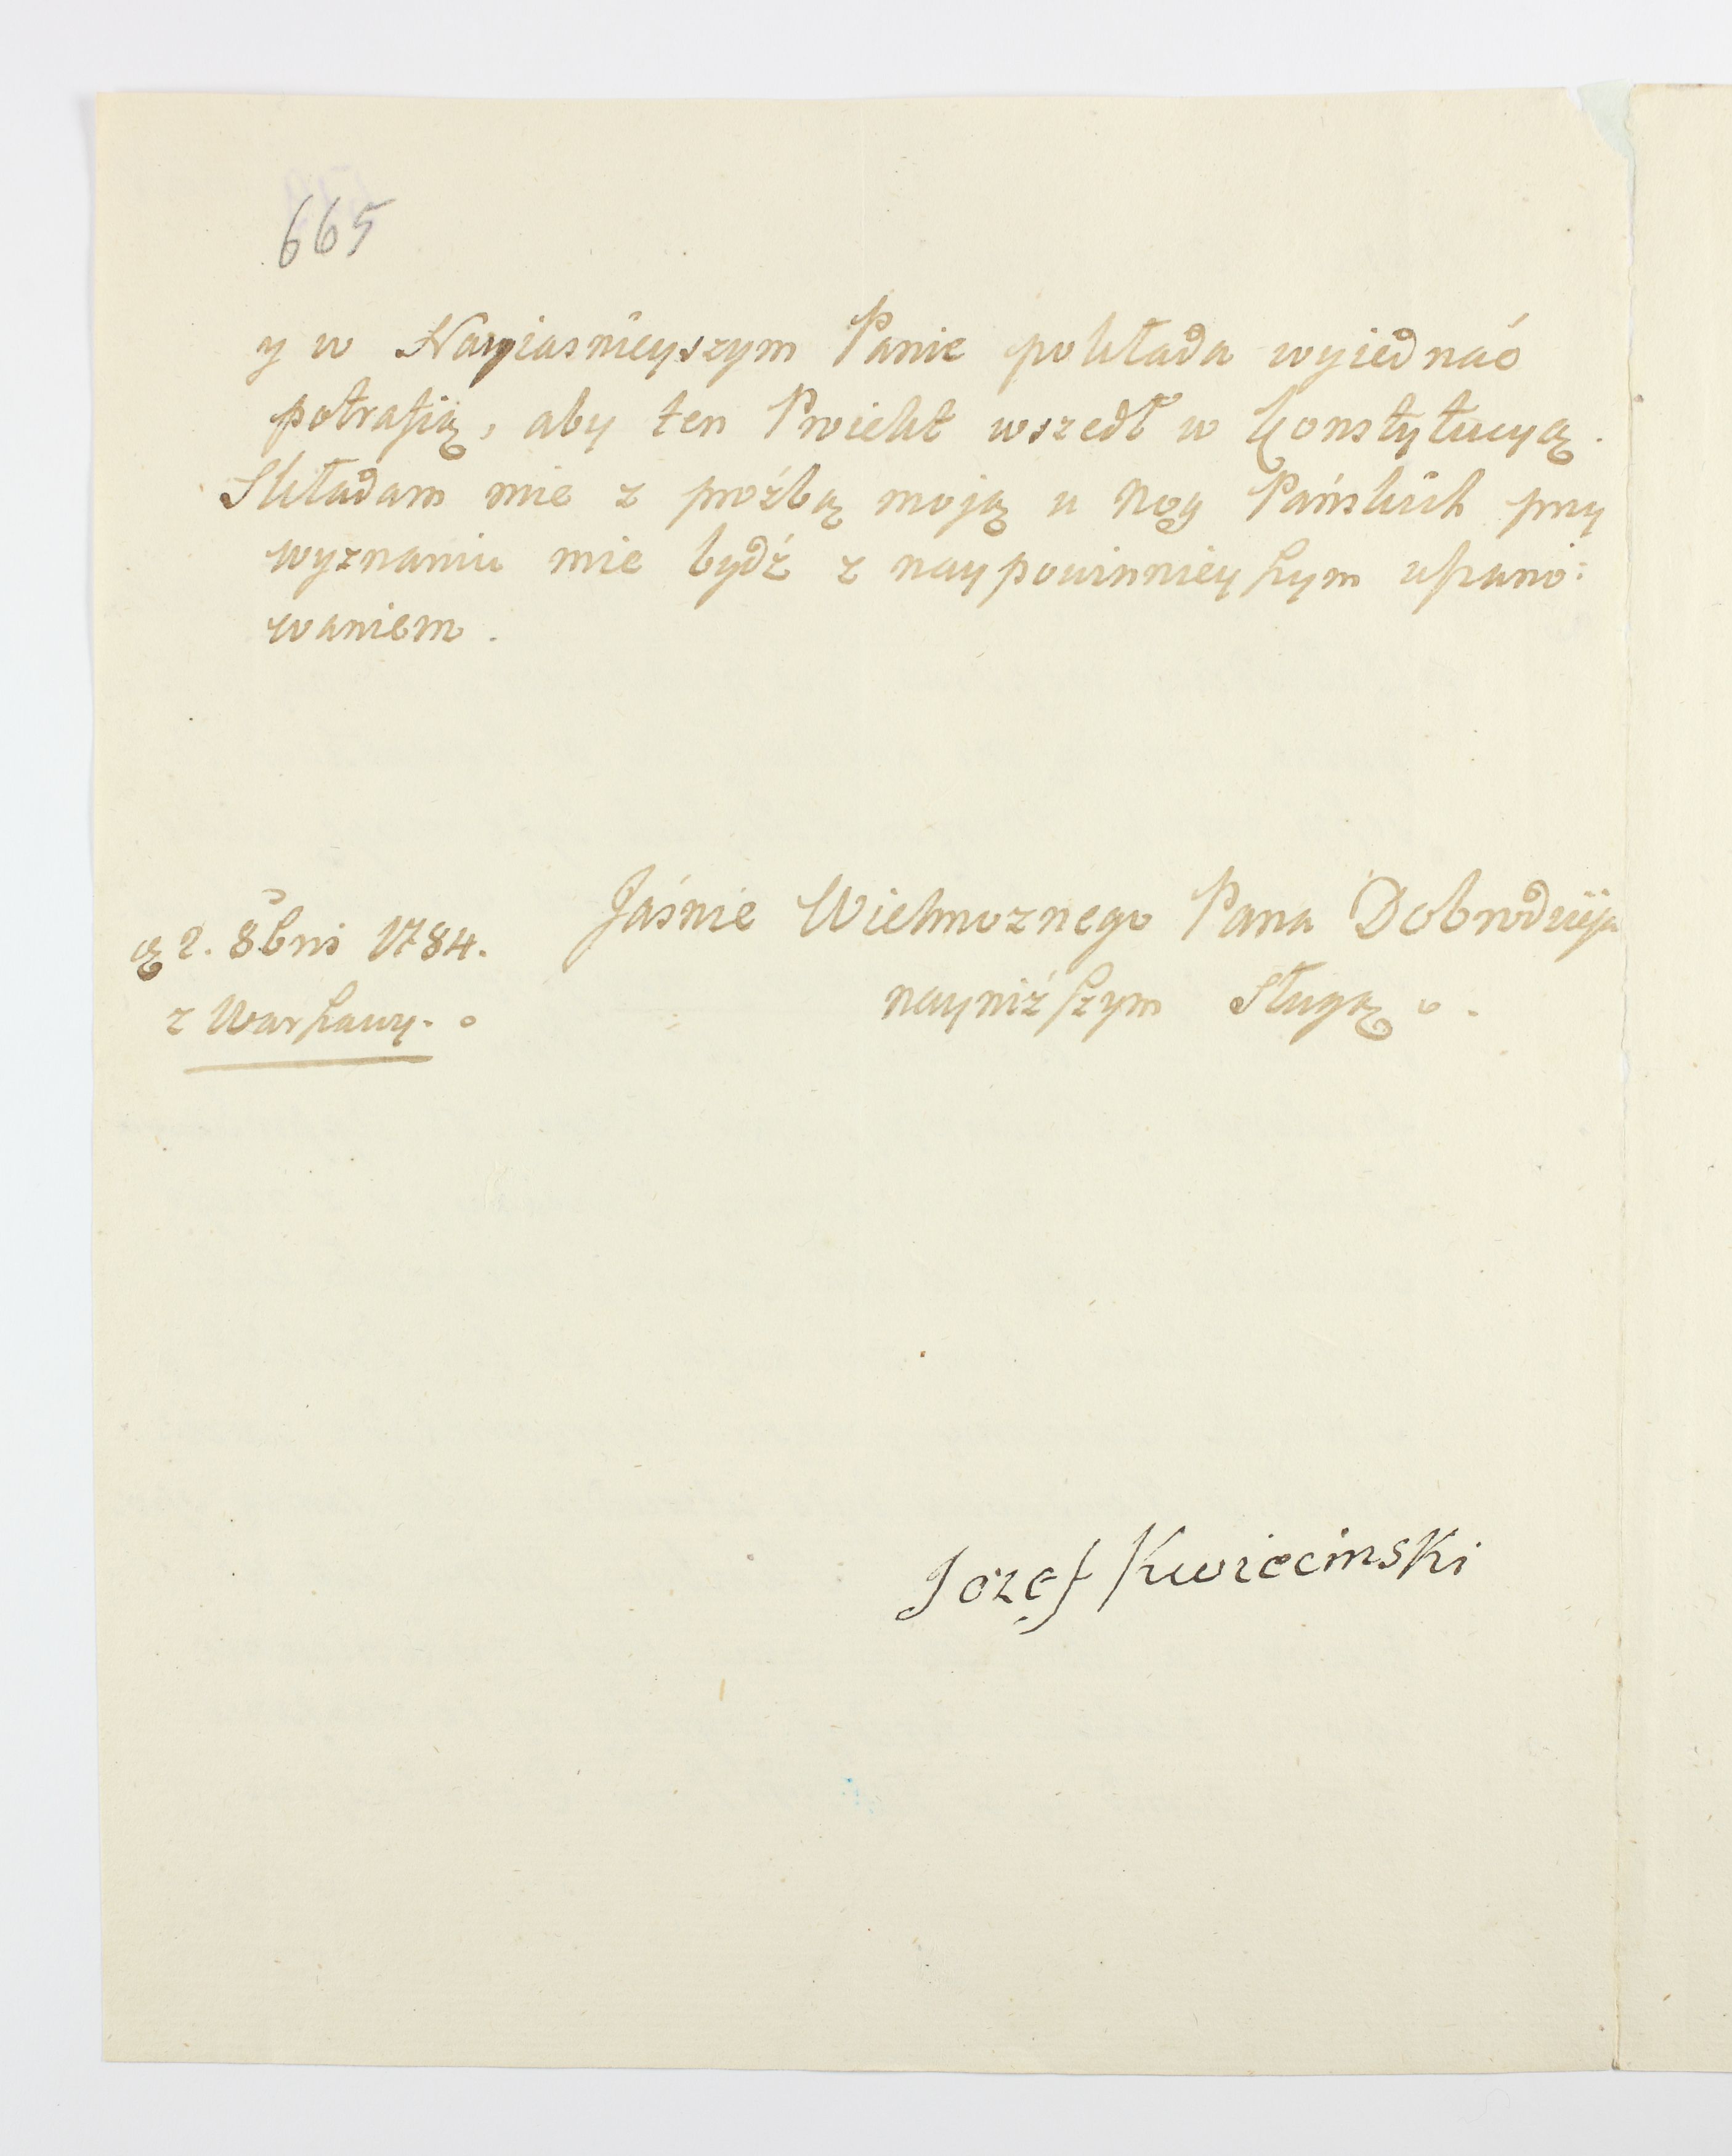 665
y w Nayiasnieyszym Panie pokłada wyiednać
potrafią, aby ten Proiekt wszedł w Konstytucyą.
Składam mie z proźbą moją u Nog Pańskich przy
wyznaniu mie bydź z naypowinnieyszym uszano:
waniem.
Jaśnie Wielmoznego Pana Dobrodzieja
nayniższym Sługą.
2. 8bris 1784.
z Warszawy.
Jozef Kwiecinski